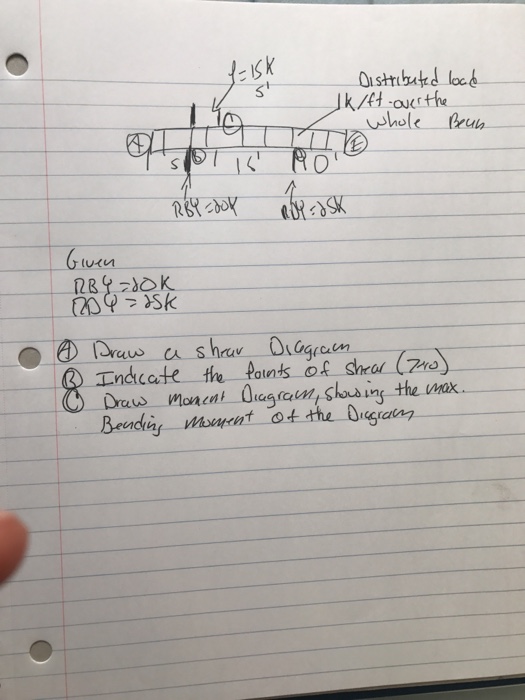 P=15K
5'
Distributed load
1K/ft over the
whole Beam
A
C
E
5'
B
15'
D
10'
RBY=20K
RDY=25K
Given
RBY=20K
RDY=25K
A Draw a shear Diagram
B Indicate the points of shear (zero)
C Draw moment Diagram, showing the max.
Bending moment of the Diagram